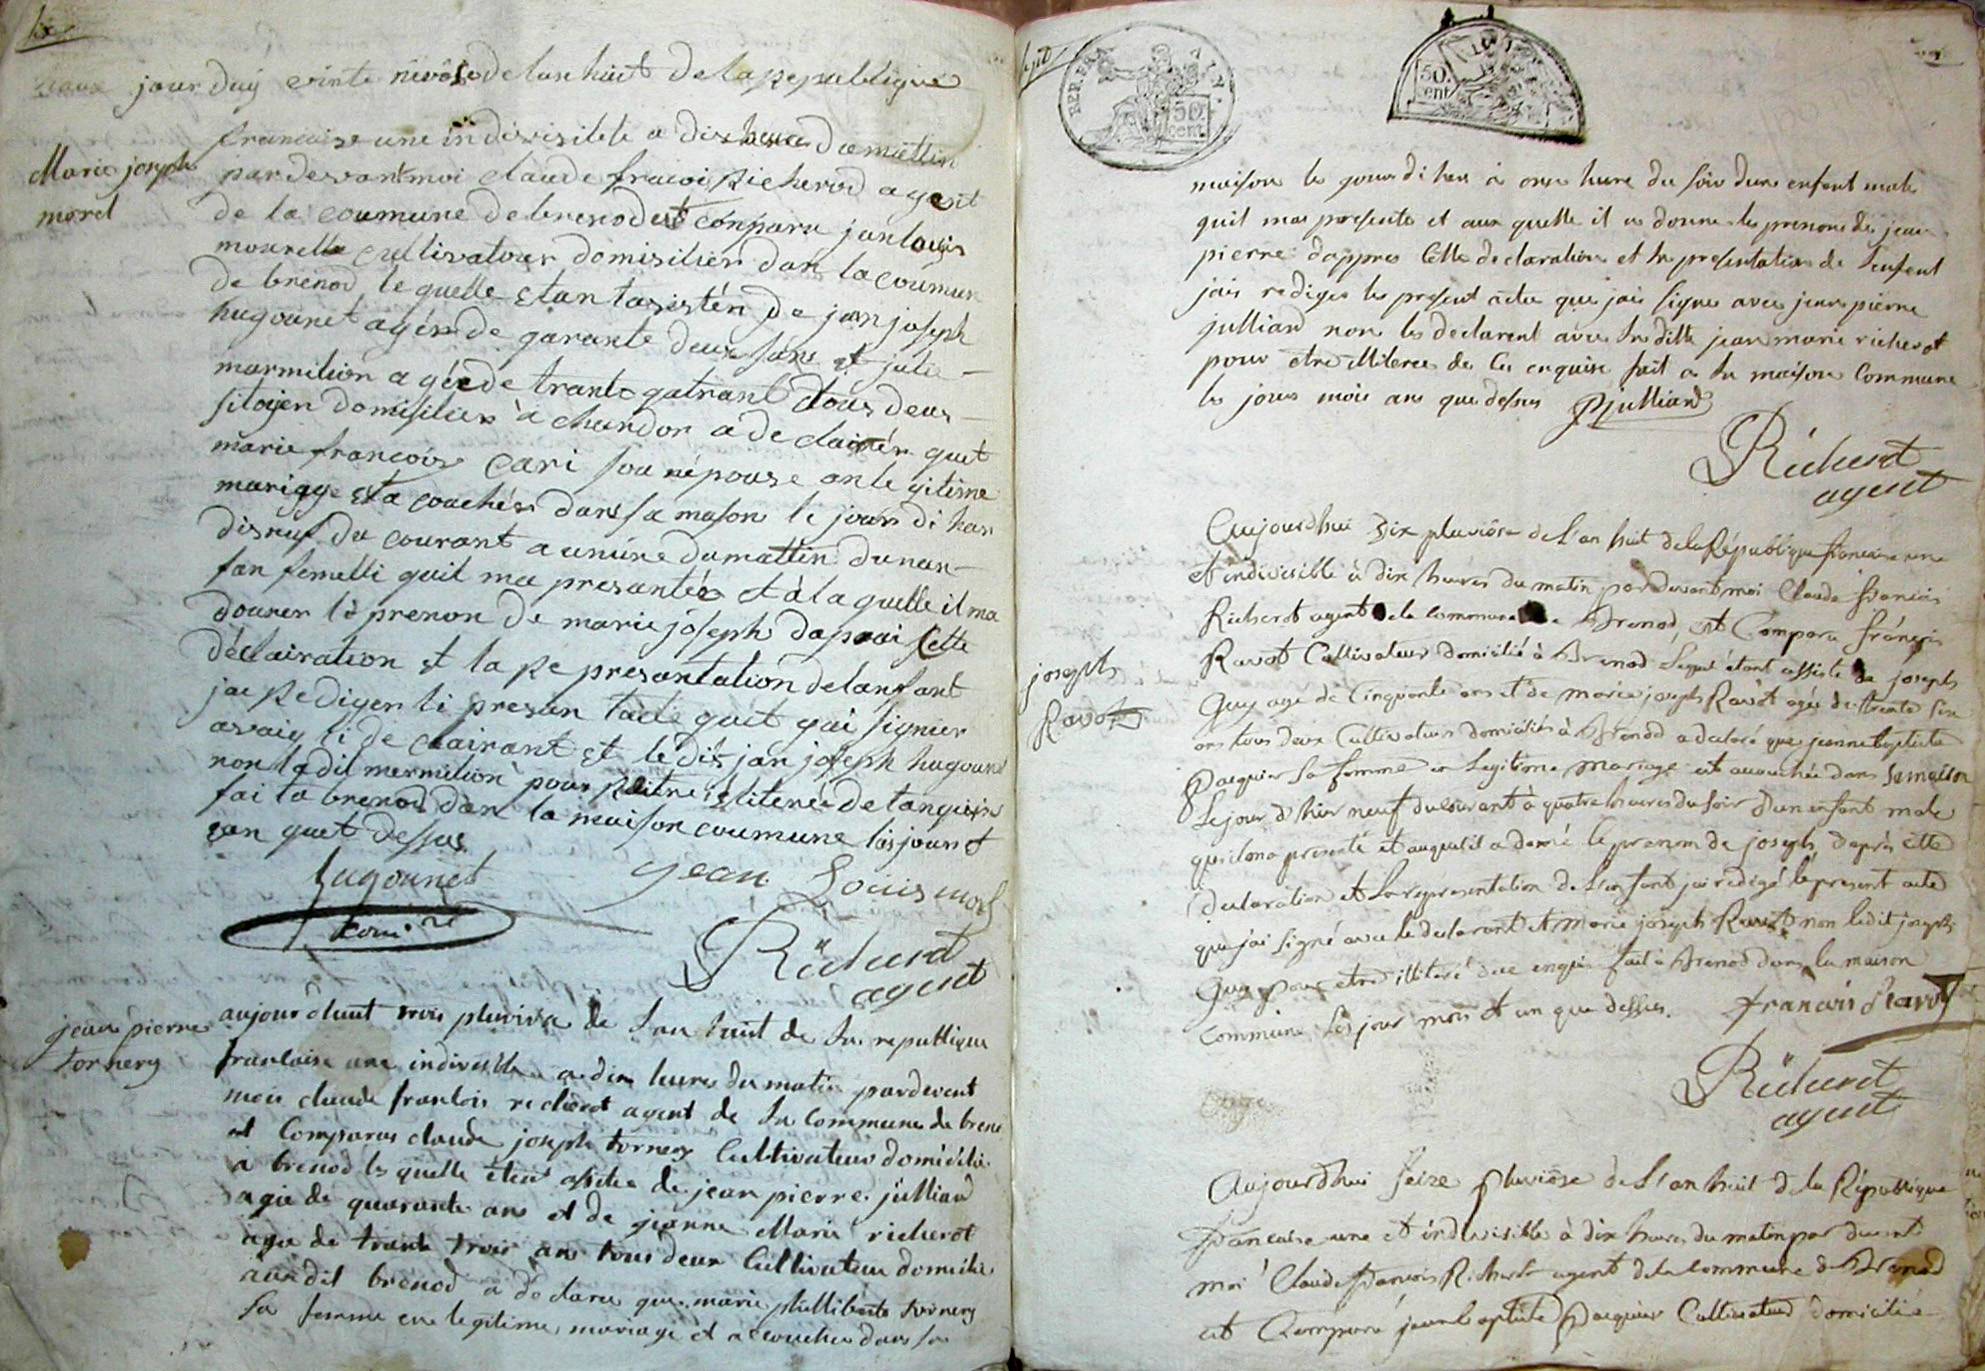 six
jour duy vinte nivose de lan huit de la republique
francaise une indivisible a dix heure du mattin
Marie joseph
morel
pardevant moi claude fracoi Richerod agent
de la coumune de brenod est conparu jan louis
mourelle cultivatour domisilier dan la coumun
de brenod le quelle etan tasistén de jean joseph
hugounet agér de garante deux sans et julie
marmilion a gér de trante gatrant tous deus
sitoyen domisilier à chandor a declairér quet
marie francois cari son népouse an le gitime
mariage et a couchér dans sa mason le jour di her
disneuf du courant a unúre du mattin du nan
fan femelli quil ma presantée et à la quelle il ma
douner le prenon de marie joseph daprai sette
déclairation et la re presantation de lanfant
jai redigen li presan tacte quet gai signier
avaiq li de clairant et le dis jan joseph hugounet
non le dit mermilion pour etre iliterée de tanquire
fai ta brenod dan la maison coumune lis jour et
gan quet dessus
hugounet
Jean Louis morel
Richerot
agent
jean pierre
tornery
aujourdhuit trois pluviose de lan huit de la republique
francaise une indivisible a dix heures du matin pardevent
moi claude francois richerot agent de la commune de breno
et Comparus claude joseph tornery Cultivateur domicilié
a brenod le quelle etent assiste de jean pierre julliard
agée de quarante ans et de jeanne Marie richerot
agée de trante trois ans tous deux Cultivateur domicilié
audit brenod a declaré que marie philliberte tornery
sa femme en legitime mariage et accouchée dans sa
sept
REP. FRA
50.
cent
50.
cent
maison le jour di hier à onze heure du soir dun enfent male
quil mas presente et aux quelle il a donne les prenom de jean
pierre dappres Cette declaration et la presentation de lenfent
jais rediges les present acte que jais signe avec jean pierre
julliard non les declarent avec la ditte jean marie richerot
pour etre illiteres de les enquire fait a la maison Commune
les jour mois ans que dessus PJulliard
Richerot
agent
Aujourdhui Dix pluviôse de l'an huit de la République francaise une
et indivisible à dix heures du matin pardevant moi Claude francois
Richerot agent de la Commune de Brenod, est Comparu françois
Ravot Cultivateur domicilié à Brenod Lequel étant assisté de joseph
joseph
Ravot
Guy agé de Cinquante ans et de marie joseph Ravot agée de trente six
ans tous deux Cultivateurs domiciliés à Brenod a declaré que jeanne baptiste
pacquier sa femme en Legitime mariage est accouchée dans sa maison
Le jour d'hier neuf du courant à quatre heures du soir d'un enfant male
quil ma presenté et auquel il a donné le prenom de joseph, d'après cette
declaration et la representation de L'enfant jai redigé le present acte
que j'ai signé avec le declarant et marie joseph Ravot non ledit joseph
Guy pour etre illiteré de ce enquis fait à Brenod dans la maison
Commune Les jour mois et an que dessus. francois Ravot
Richerot
agent
Aujourdhui seize pluviôse de L'an huit de la République
francaise une et indivisible à dix heures du matin par devant
moi Claude francois Richerot agent de la commune de Brenod
est Comparu jean baptiste Pacquier Cultivateur domicilié